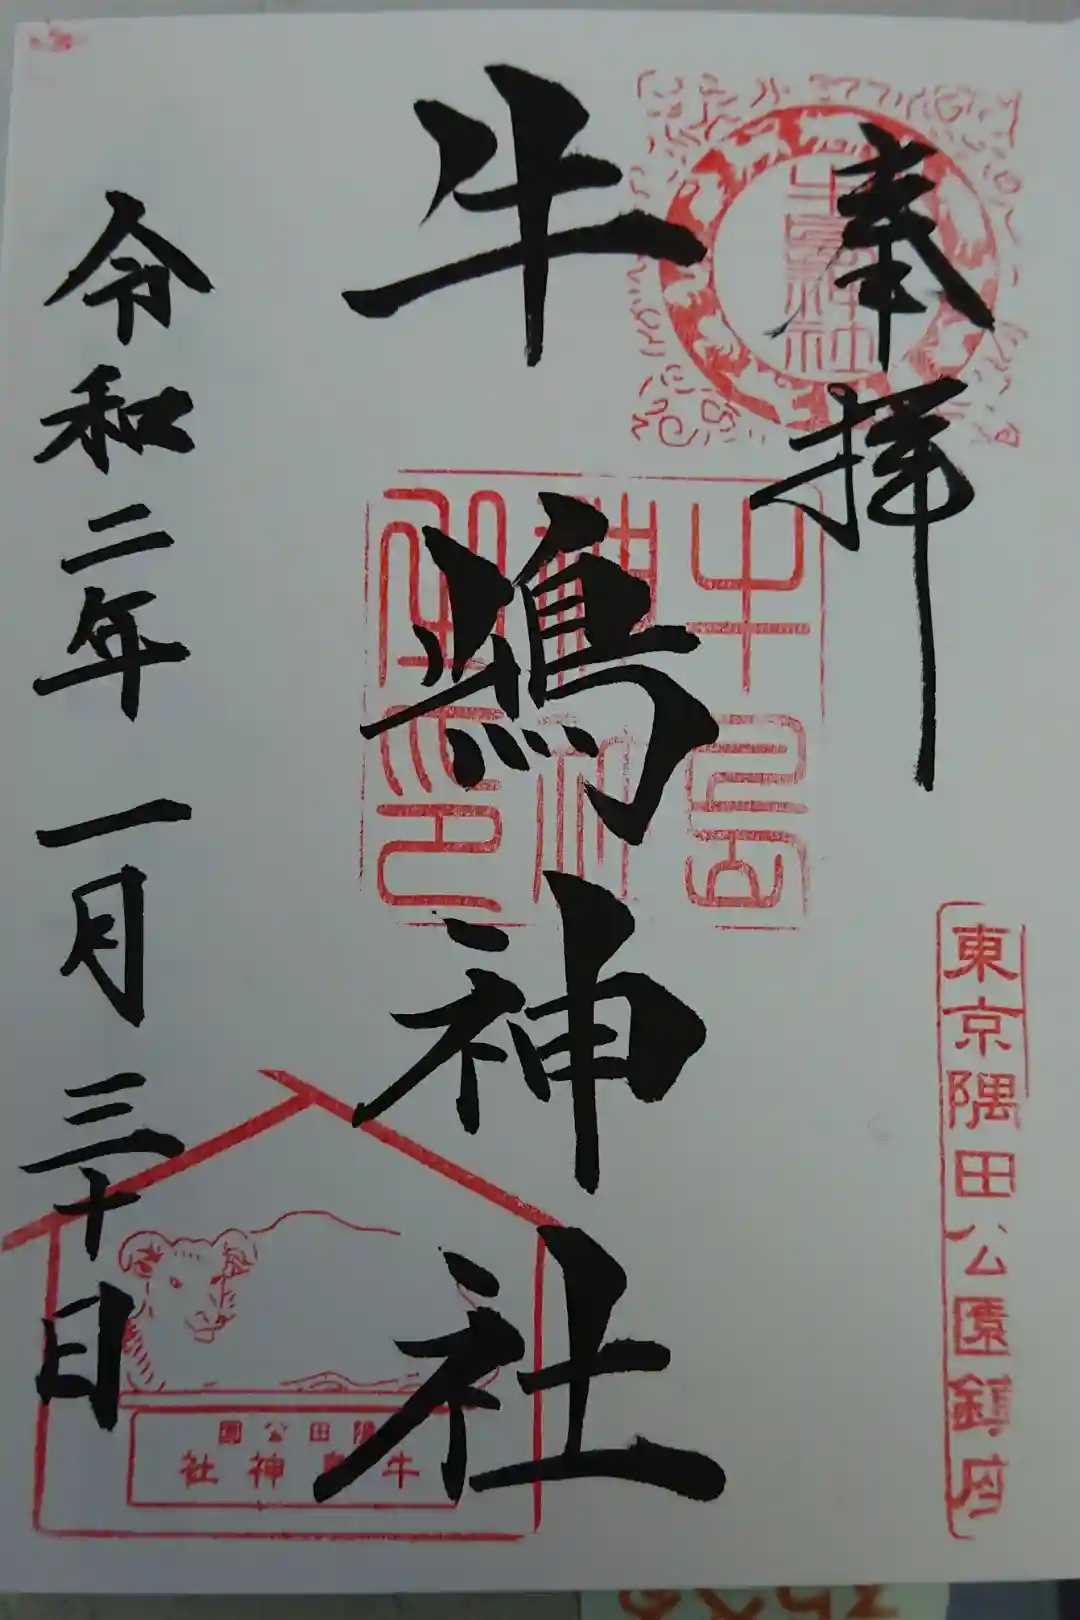 奉拝
牛嶋神社
令和二年一月三十日
牛嶋神社
牛島神社宝印
東京隅田公園鎮座
隅田公園
牛島神社